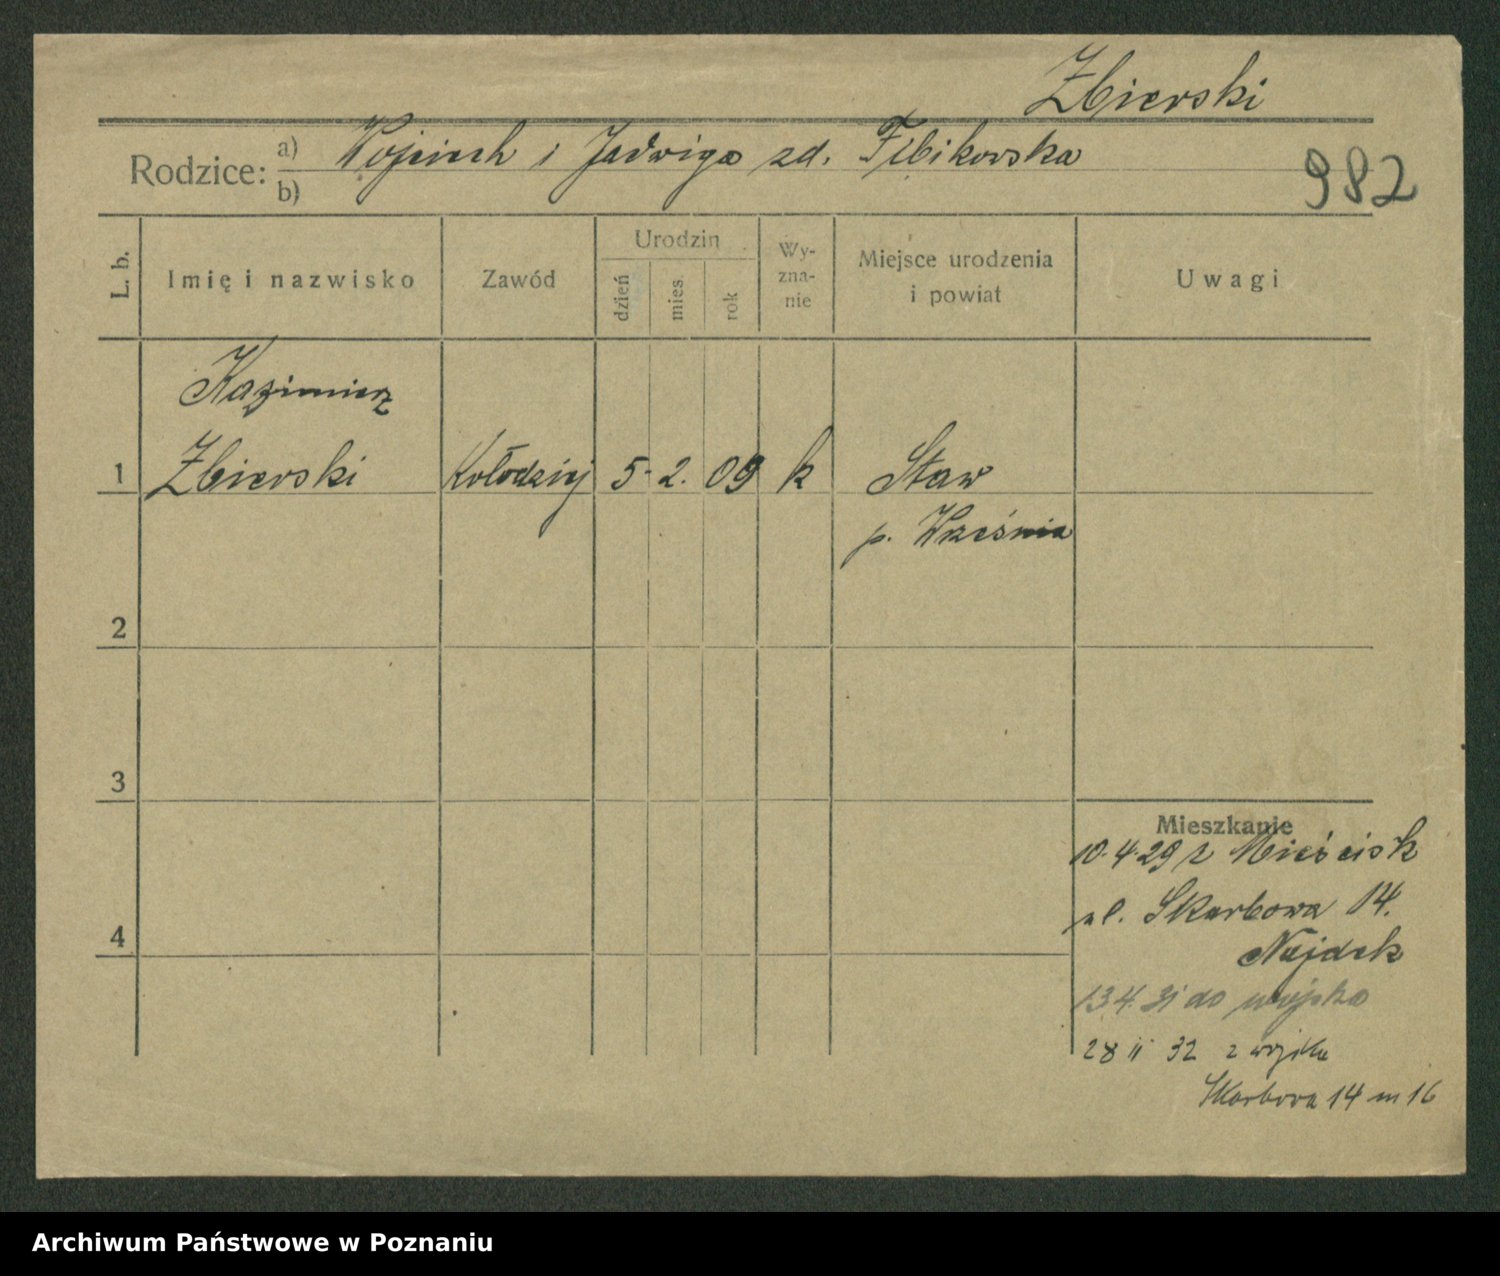 Zbierski
Rodzice: a) Wojciech i Jadwiga zd. Filikowska
b)
982
L. b.
Imię i nazwisko
Zawód
Urodzin
dzień
mies.
rok
Wy-
zna-
nie
Miejsce urodzenia
i powiat
Uwagi
Kazimierz
1 Zbierski Kołodziej 5. 2. 09 k Staw
p. Września
2
3
Mieszkanie
10.4.29 z Mieścisk
ul. Skarbowa 14.
Najdek
4
13.4.31 do wojska
28 II 32 z wojska
Skarbowa 14 m 16
Archiwum Państwowe w Poznaniu